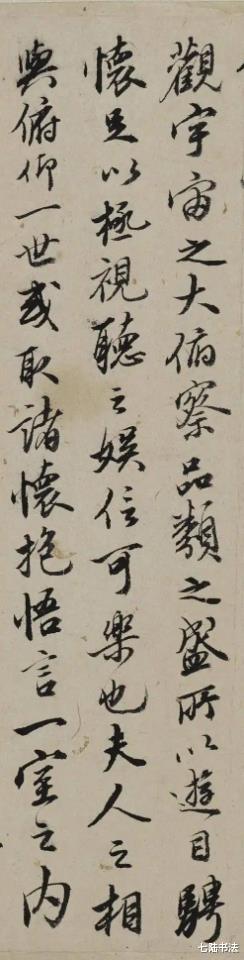 觀宇宙之大俯察品類之盛所以遊目騁
懷足以極視聽之娛信可樂也夫人之相
與俯仰一世或取諸懷抱悟言一室之內
七陆书法